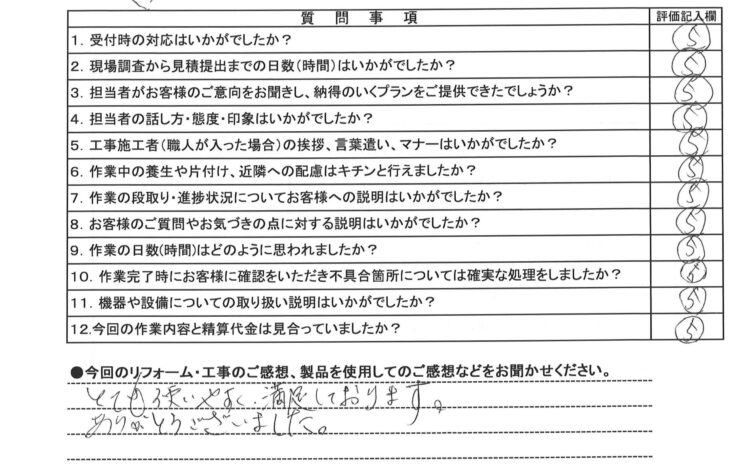 質問事項 評価記入欄
1. 受付時の対応はいかがでしたか? 5
2. 現場調査から見積提出までの日数(時間)はいかがでしたか? 5
3. 担当者がお客様のご意向をお聞きし、納得のいくプランをご提供できたでしょうか? 5
4. 担当者の話し方・態度・印象はいかがでしたか? 5
5. 工事施工者(職人が入った場合)の挨拶、言葉遣い、マナーはいかがでしたか? 5
6. 作業中の養生や片付け、近隣への配慮はキチンと行えましたか? 5
7. 作業の段取り・進捗状況についてお客様への説明はいかがでしたか? 5
8. お客様のご質問やお気づきの点に対する説明はいかがでしたか? 5
9. 作業の日数(時間)はどのように思われましたか? 5
10. 作業完了時にお客様に確認をいただき不具合箇所については確実な処理をしましたか?
11. 機器や設備についての取り扱い説明はいかがでしたか? 5
12.今回の作業内容と精算代金は見合っていましたか? 5
●今回のリフォーム・工事のご感想、製品を使用してのご感想などをお聞かせください。
とても使いやすく、満足しております。
ありがとうございました。